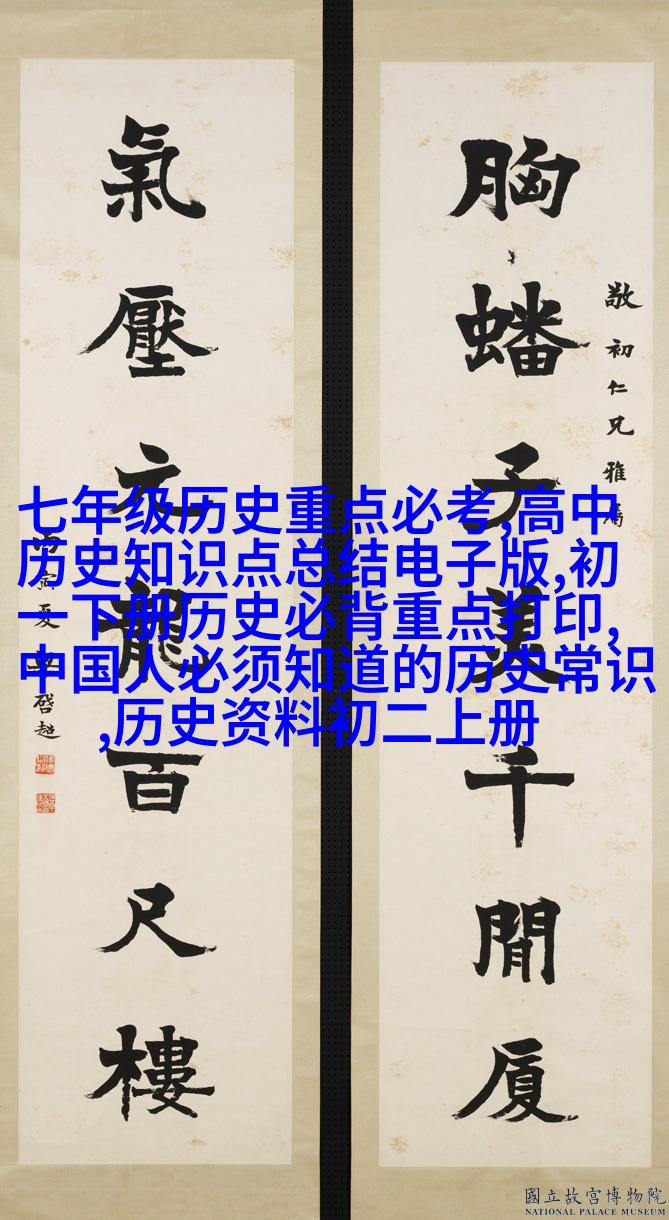 胸蟠子美千間厦
敬初仁兄雅屬
氣壓元龍百尺樓
丙寅夏 啓超
七年级历史重点必考,高中
历史知识点总结电子版,初
一下册历史必背重点打印,
中国人必须知道的历史常识
,历史资料初二上册
國立故宮博物院
NATIONAL PALACE MUSEUM